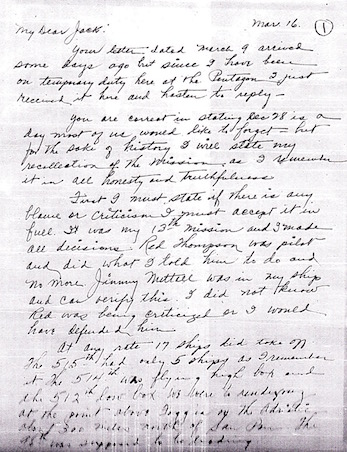 Mar 16. 1
My Dear Jack:
Your letter dated March 9 arrived
some days ago but since I have been
on temporary duty here at the Pentagon I just
received it here and hasten to reply—
You are correct in stating Dec 28 is a
day most of us would like to forget – but
for the sake of history I will state my
recollection of the mission as I remember
it in all honesty and truthfulness
First I must state if there is any
blame or criticism I must accept it in
full. It was my 13th mission and I made
all decisions. Red Thompson was pilot
and did what I told him to do and
no more. Jimmy Nuttall was in my ship
and can verify this. I did not know
Red was being criticized or I would
have defended him
At any rate 17 ships did take off
The 515th had only 5 ships as I remember
it the 514th was flying high box and
the 512th low box. We were to rendezvous
at the point above Foggia on the Adriatic
about 200 miles north of San Pan. The
98th was supposed to be leading